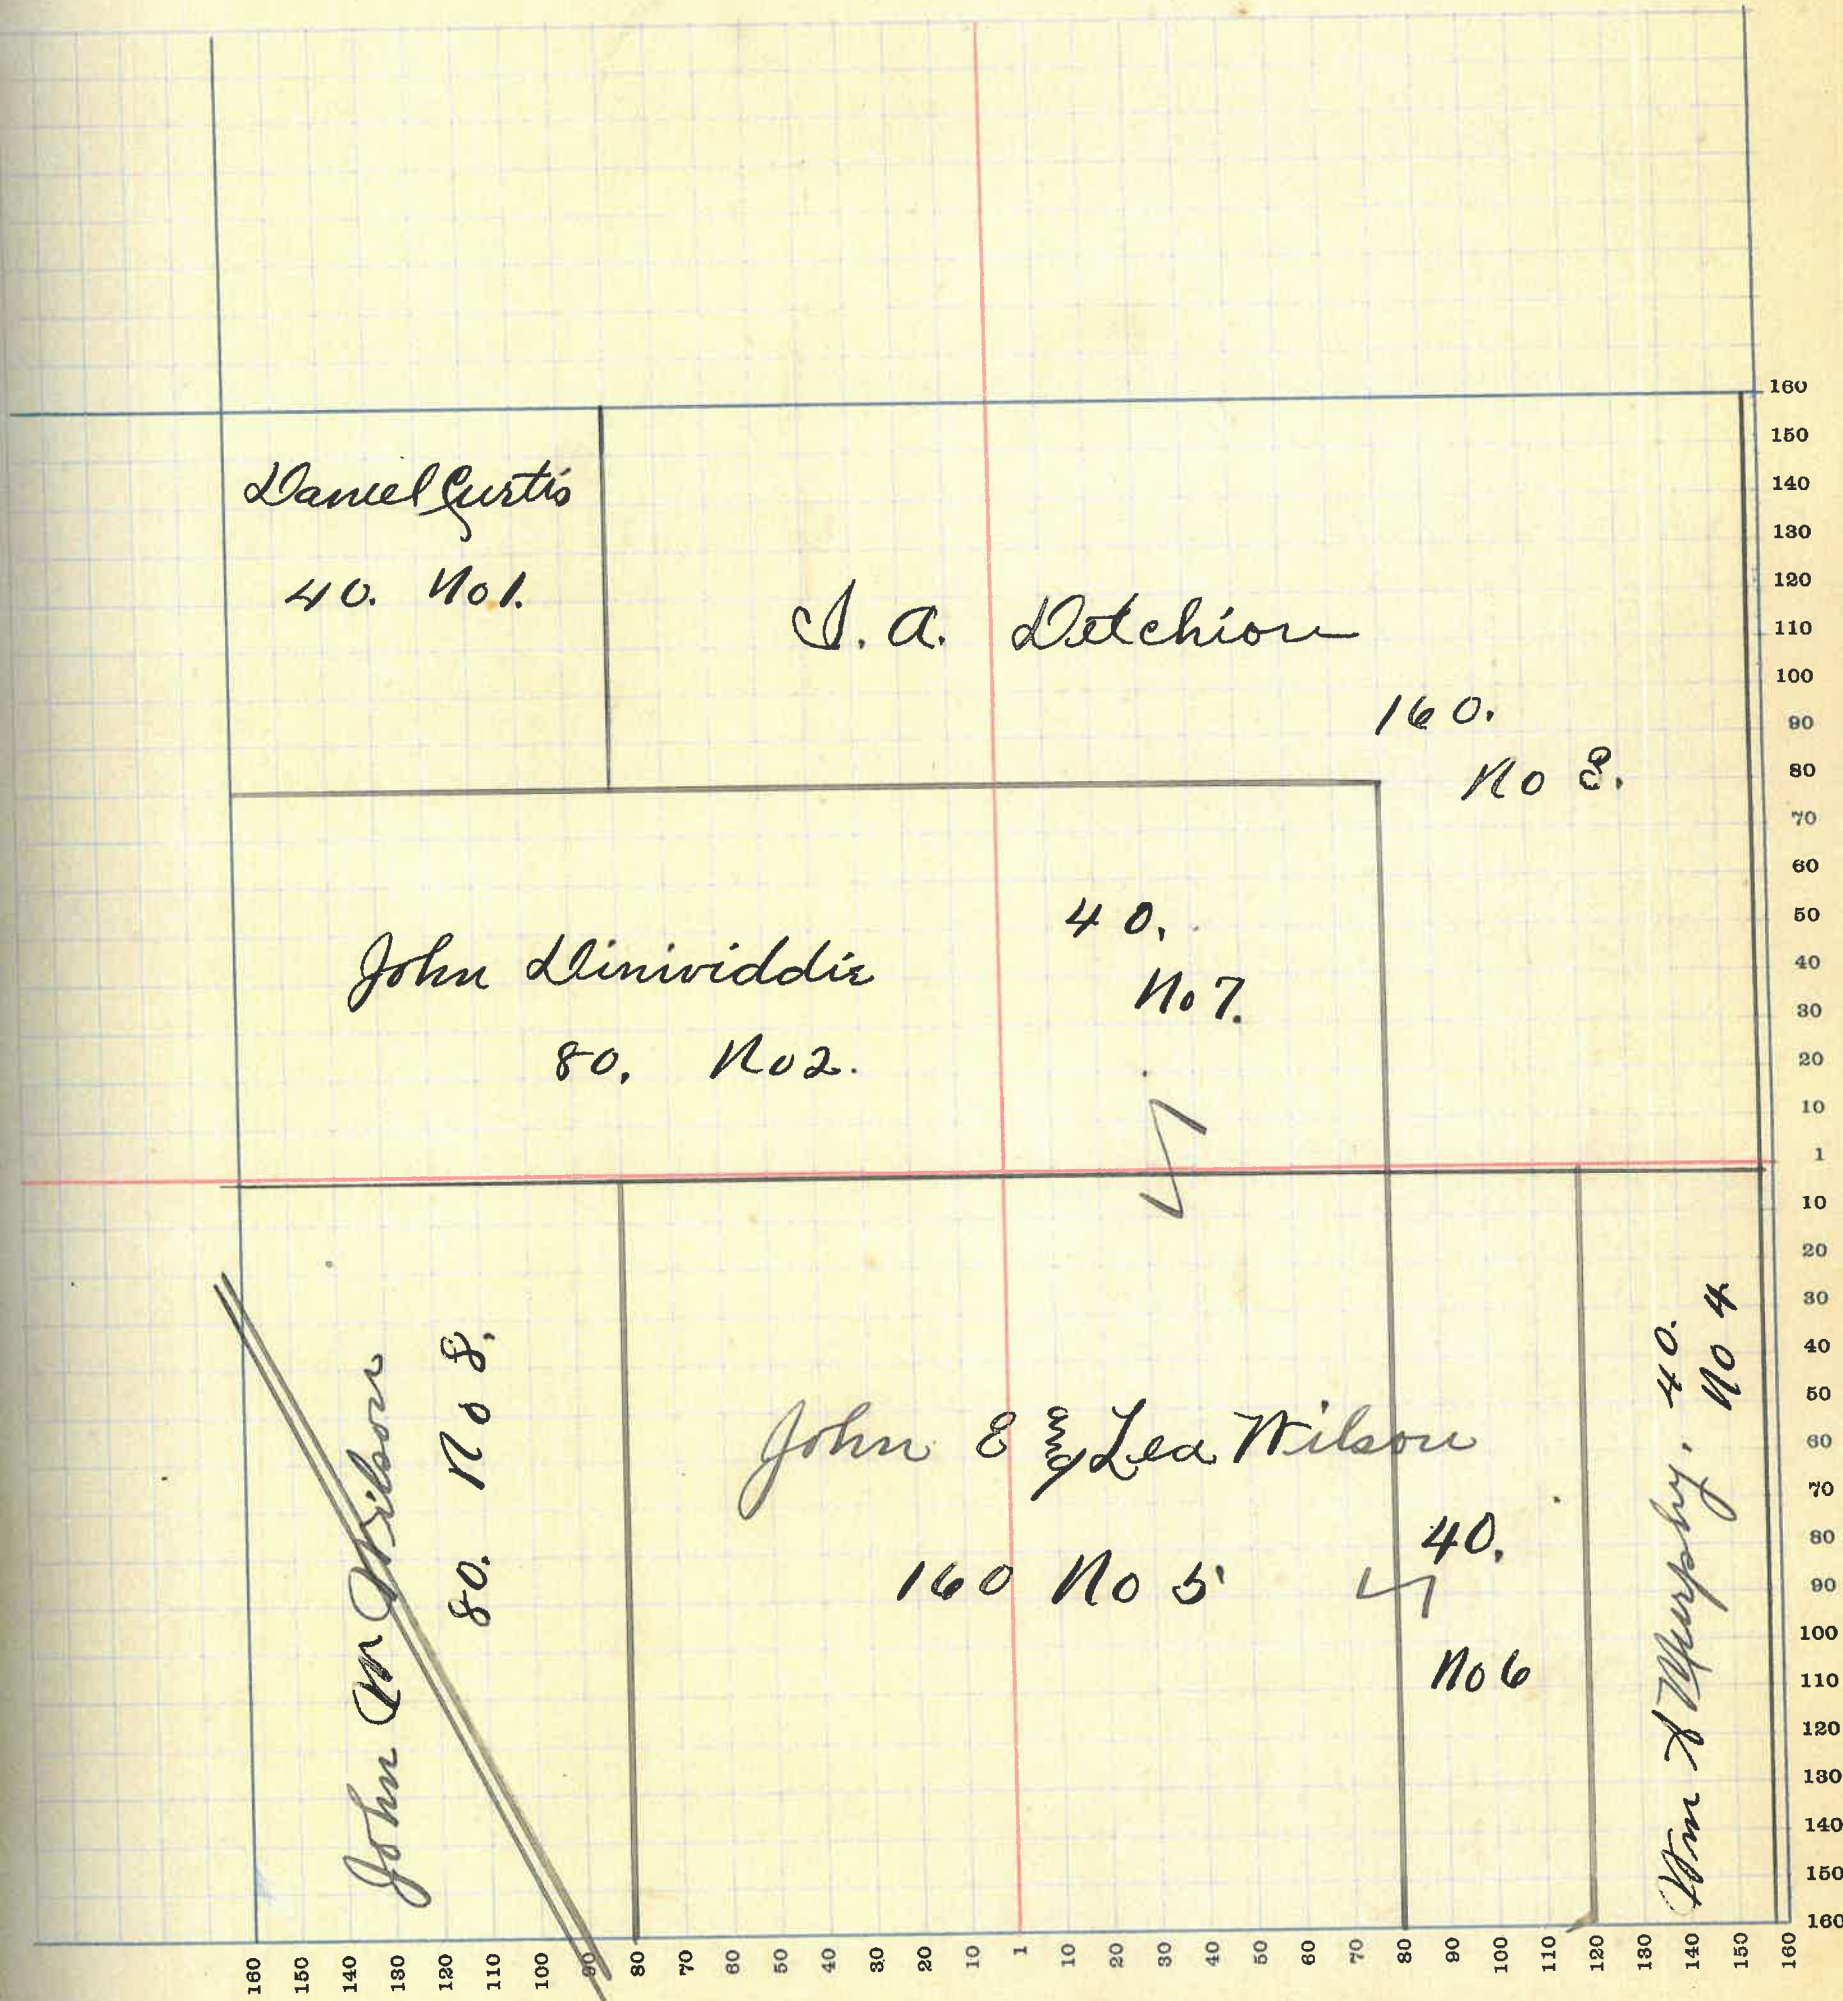 Daniel Curtis
40. No 1.
I. A. Detchion
160.
No 3.
John Diniwiddie
80. No 2.
40.
No 7.
John M Wilson
80. No 8.
John E & Lea Wilson
160 No 5
40.
No 6
Murphy. 40.
No 4
160
150
140
130
120
110
100
90
80
70
60
50
40
30
20
10
1
10
20
30
40
50
60
70
80
90
100
110
120
130
140
150
160
160 150 140 130 120 110 100 90 80 70 60 50 40 30 20 10 1 10 20 30 40 50 60 70 80 90 100 110 120 130 140 150 160